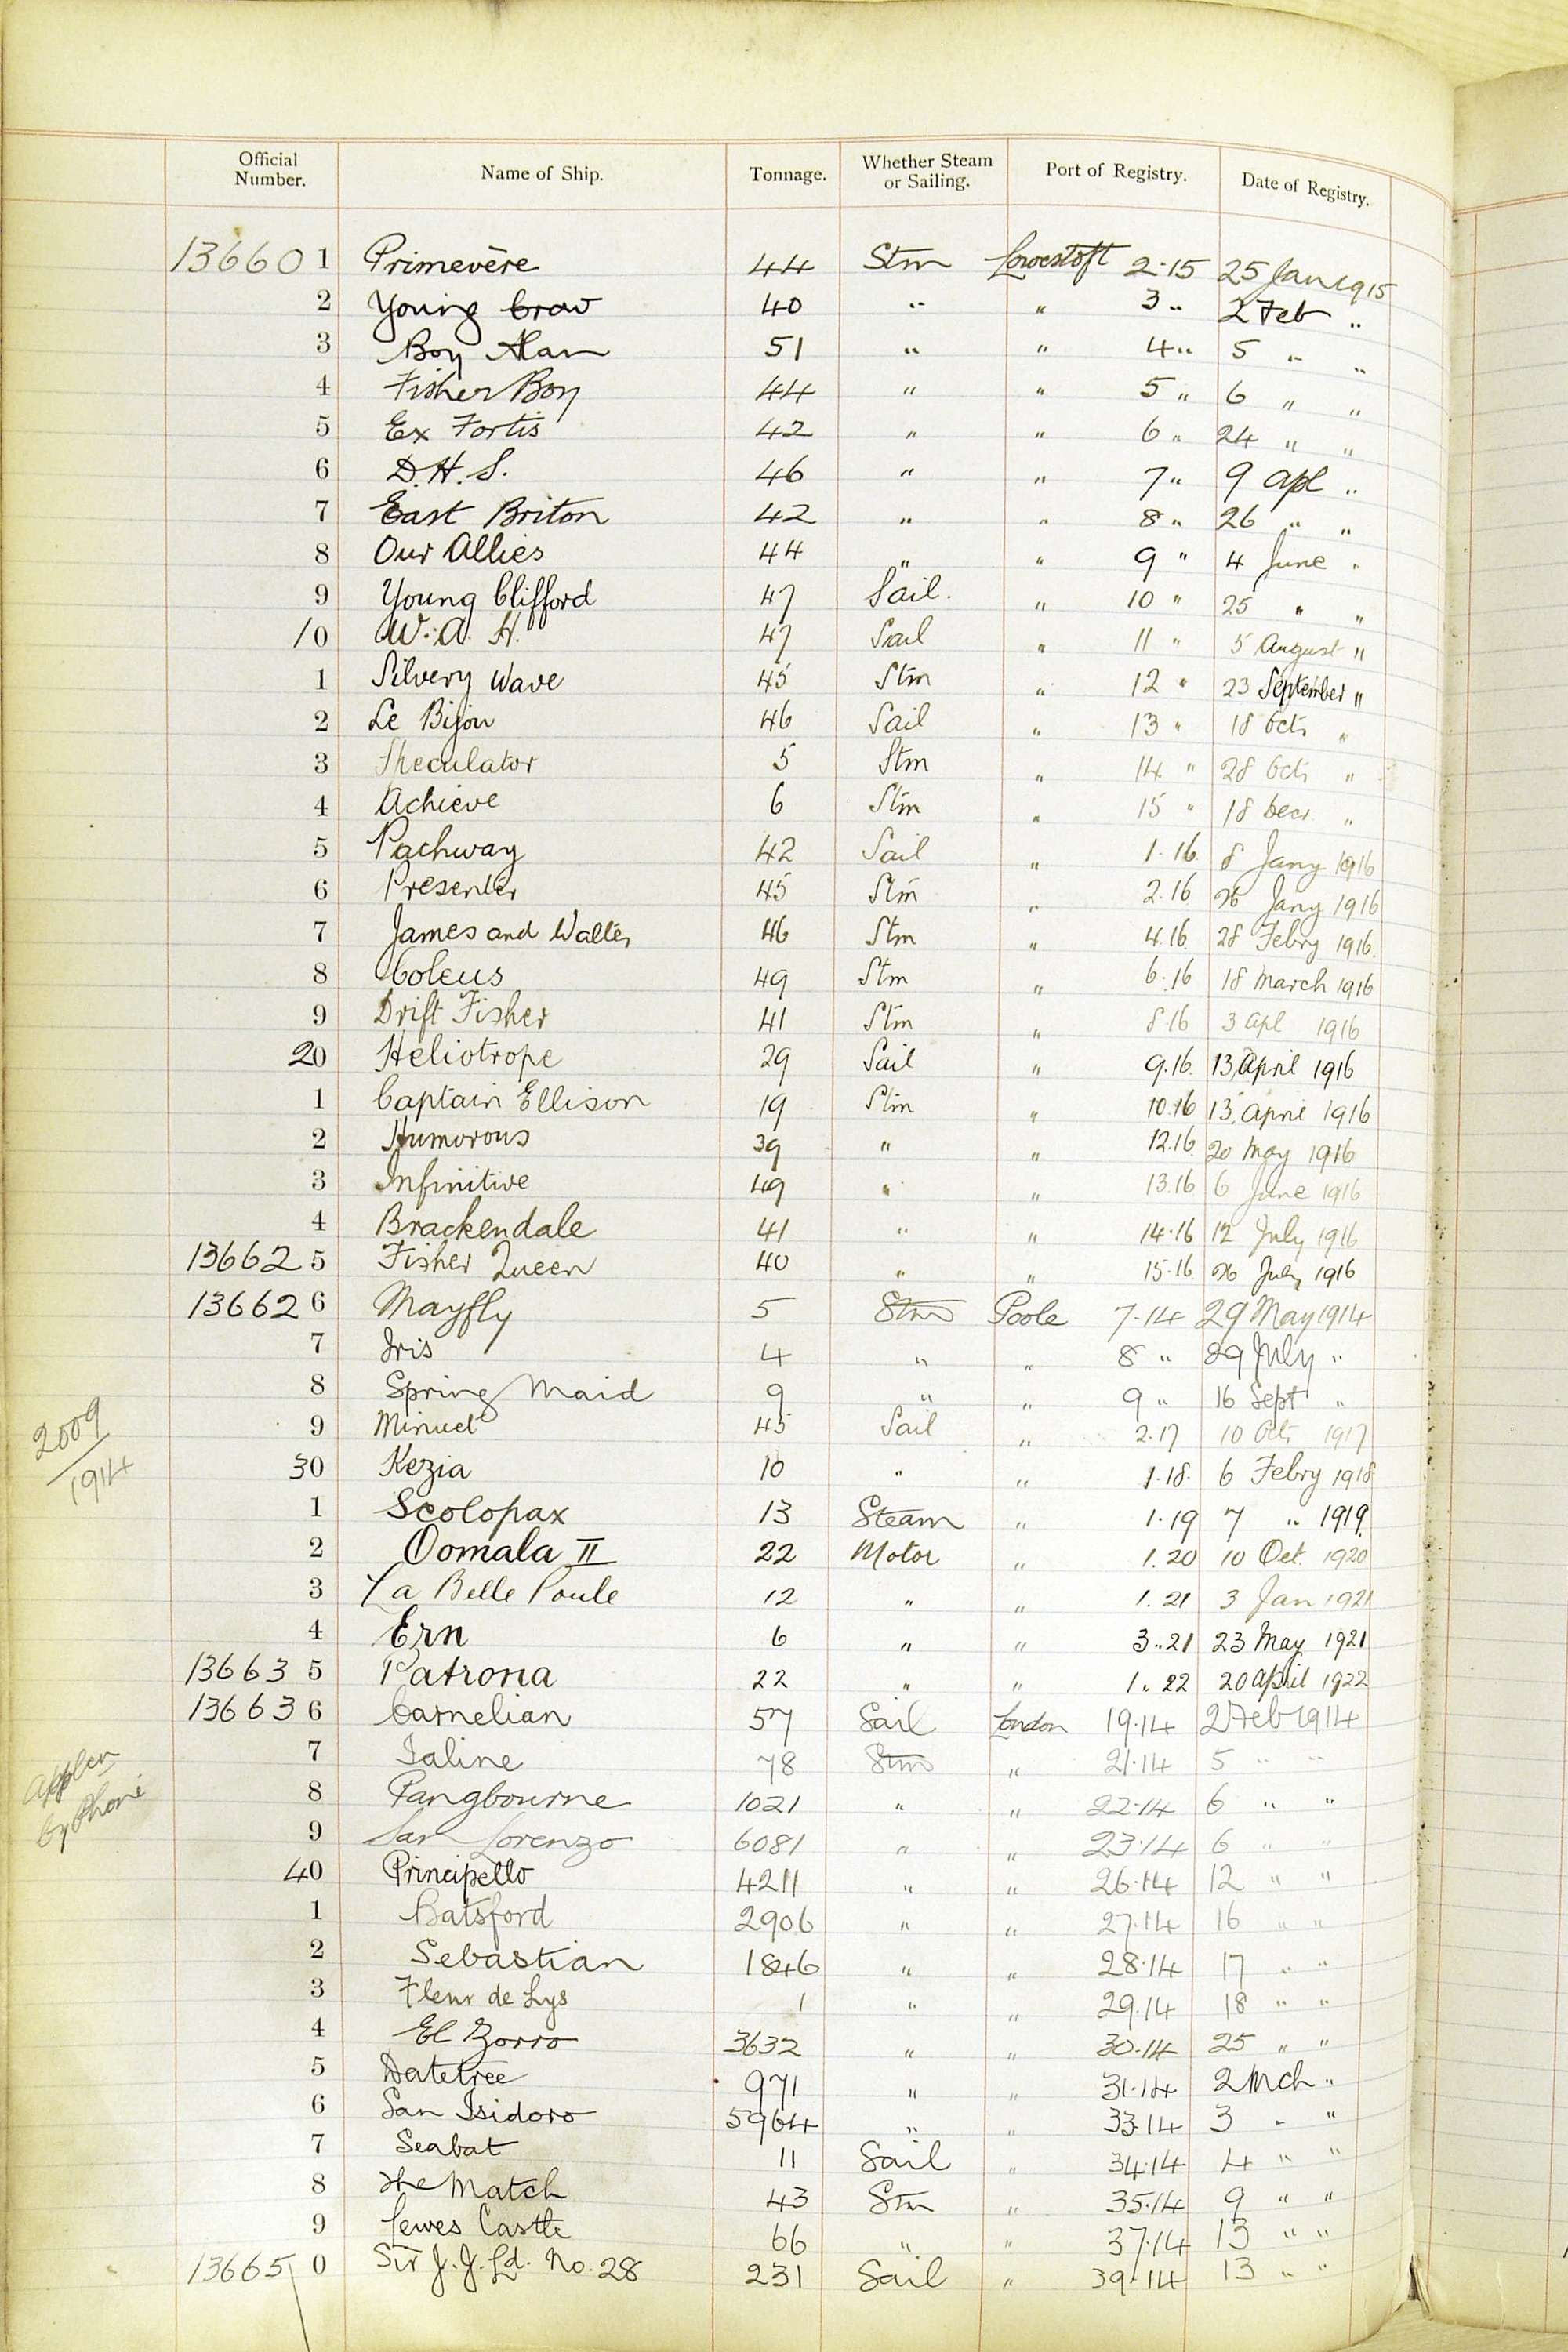 Official Number. Name of Ship. Tonnage. Whether Steam or Sailing. Port of Registry. Date of Registry.
13660 1 Primevère 44 Stm Lowestoft 2.15 25 Jan 1915
2 Young Crow 40 " " 3 " 2 Feb "
3 Boy Alan 51 " " 4 " 5 " "
4 Fisher Boy 44 " " 5 " 6 " "
5 Ex Fortis 42 " " 6 " 24 " "
6 D.H.S. 46 " " 7 " 9 Apl "
7 East Briton 42 " " 8 " 26 " "
8 Our Allies 44 " " 9 " 4 June "
9 Young Clifford 47 Sail. " 10 " 25 " "
10 W.A.H. 47 Sail " 11 " 5 August "
1 Silvery Wave 45 Stm " 12 " 23 September "
2 Le Bijou 46 Sail " 13 " 18 Oct "
3 Speculator 5 Stm " 14 " 28 Oct "
4 Achieve 6 Stm " 15 " 18 Decr "
5 Pachway 42 Sail " 1.16 8 Jany 1916
6 Presenter 45 Stm " 2.16 26 Jany 1916
7 James and Walter 46 Stm " 4.16 28 Febry 1916.
8 Coleus 49 Stm " 6.16 18 March 1916
9 Drift Fisher 41 Stm " 8.16 3 Apl 1916
20 Heliotrope 29 Sail " 9.16. 13 April 1916
1 Captain Ellison 19 Stm " 10.16 13 April 1916
2 Humorous 39 " " 12.16 20 May 1916
3 Infinitive 49 " " 13.16 6 June 1916
4 Brackendale 41 " " 14.16 12 July 1916
13662 5 Fisher Queen 40 " " 15.16 26 July 1916
13662 6 Mayfly 5 Stm Poole 7.14 29 May 1914
7 Iris 4 " " 8 " 29 July "
8 Spring Maid 9 " " 9 " 16 Sept "
2009
1914
9 Minuet 45 Sail " 2.17 10 Oct 1917
30 Kezia 10 " " 1.18. 6 Febry 1918
1 Scolopax 13 Steam " 1.19 7 " 1919
2 Oomala II 22 Motor " 1.20 10 Oct. 1920
3 La Belle Poule 12 " " 1.21 3 Jan 1921
4 Ern 6 " " 3.21 23 May 1921
13663 5 Patrona 22 " " 1.22 20 April 1922
13663 6 Carnelian 57 Sail London 19.14 2 Feb 1914
7 Ialine 78 Stm " 21.14 5 " "
by Phone
8 Pangbourne 1021 " " 22.14 6 " "
9 San Lorenzo 6081 " " 23.14 6 " "
40 Principello 4211 " " 26.14 12 " "
1 Batsford 2906 " " 27.14 16 " "
2 Sebastian 1846 " " 28.14 17 " "
3 Fleur de Lys 1 " " 29.14 18 " "
4 El Zorro 3632 " " 30.14 25 " "
5 Datetree 971 " " 31.14 2 Mch "
6 San Isidoro 5964 " " 33.14 3 " "
7 Seabat 11 Sail " 34.14 4 " "
8 The Match 43 Stm " 35.14 9 " "
9 Lewes Castle 66 " " 37.14 13 " "
13665 0 Sir J.J. Ld. No. 28 231 Sail " 39.14 13 " "